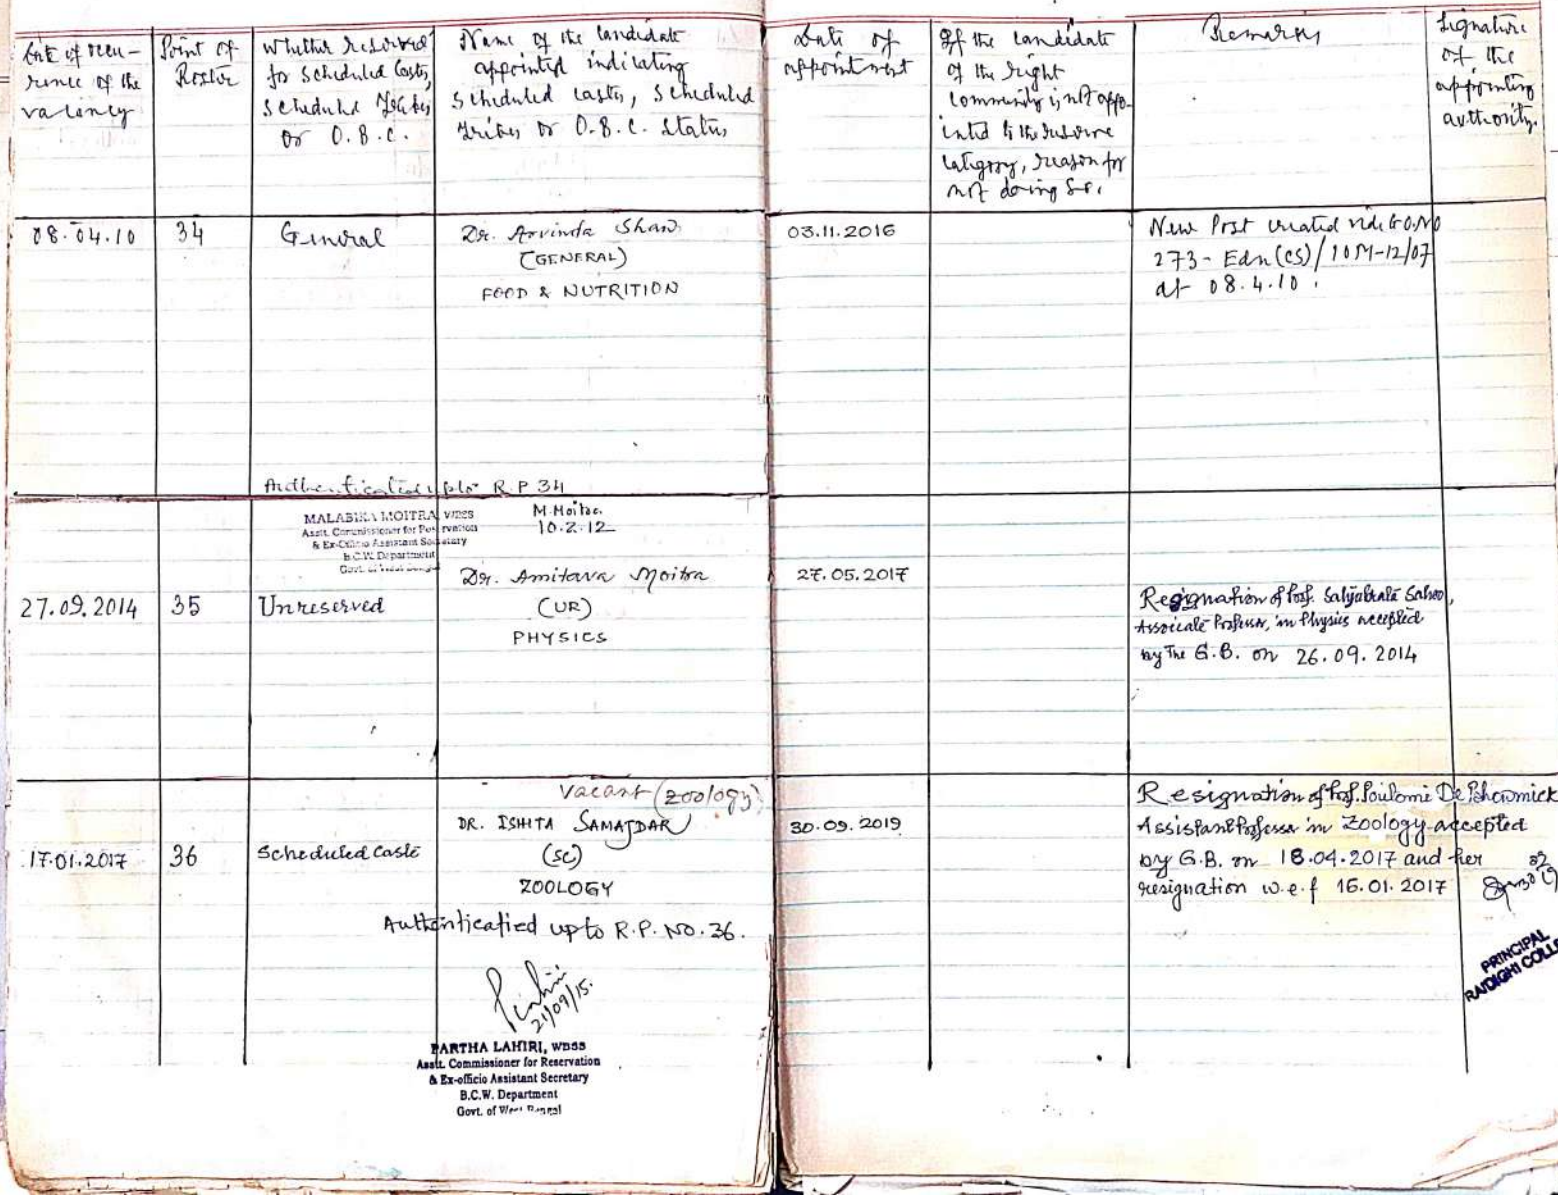 Date of occu-
rence of the
vacancy
Point of
Roster
Whether reserved
for Scheduled Castes,
Scheduled Tribes
or O.B.C.
Name of the candidate
appointed indicating
Scheduled castes, Scheduled
Tribes or O.B.C. Status,
Date of
appointment
If the candidate
of the right
community is not appo-
inted to the reserve
category, reason for
not doing so.
Remarks
Signature
of the
appointing
authority.
08.04.10
34
General
Dr. Arvinda Shaw
(GENERAL)
FOOD & NUTRITION
03.11.2016
New Post created vide G.O.NO
273-Edn(CS)/10M-12/07
dt 08.4.10.
Authenticated upto R P 34
MALABIKA MOITRA, WBSS
Asstt. Commissioner for Reservation
& Ex-Officio Assistant Secretary
B.C.W. Department
Govt. of West Bengal
M.Moitra.
10.2.12
27.09.2014
35
Unreserved
Dr. Amitava Moitra
(UR)
PHYSICS
27.05.2017
Resignation of Prof. Satyabrata Sahoo,
Associate Professor, in Physics accepted
by The G.B. on 26.09.2014
17.01.2017
36
Scheduled Caste
Vacant (Zoology)
DR. ISHITA SAMAJDAR
(SC)
ZOOLOGY
30.09.2019
Resignation of Prof. Poulomi De Bhowmick
Assistant Professor in Zoology accepted
by G.B. on 18.04.2017 and her
resignation w.e.f 16.01.2017
Authenticatied upto R.P. NO. 36.
21/09/15.
PARTHA LAHIRI, WBSS
Asstt. Commissioner for Reservation
& Ex-officio Assistant Secretary
B.C.W. Department
Govt. of West Bengal
PRINCIPAL
RAIDIGHI COLLE